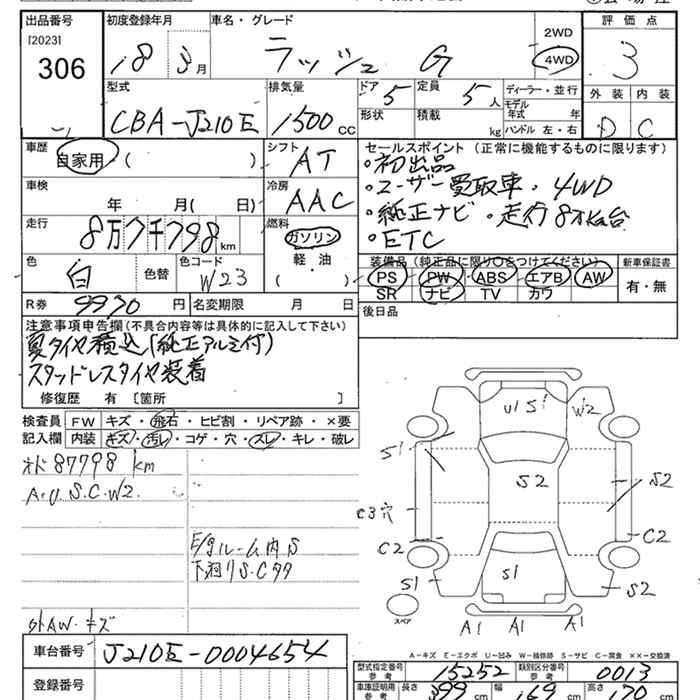 出品番号 初度登録年月 車名・グレード 2WD 評価点
[2023] 306 18 3月 ラッシュ G 4WD 3
型式 排気量 ドア 5 定員 5人 ディーラー・並行 外装 内装
CBA-J210E 1500cc 形状 積載 kg モデル年式 年 D C
ハンドル 左・右
車歴 シフト セールスポイント (正常に機能するものに限ります)
自家用・( ) AT ・初出品
車検 冷房 ・ユーザー買取車・4WD
年 月( 日) AAC ・純正ナビ・走行8万km台
走行 燃料 ・ETC
8万7千798km ガソリン
色 色替 色コード 軽・油 装備品 (純正品に限り○をつけてください) 新車保証書
白 W23 ( ) PS PW ABS エアB AW 有・無
SR ナビ TV カワ
R券 9930円 名変期限 月 日 後日品
注意事項申告欄(不具合内容等は具体的に記入して下さい)
夏タイヤ積込(純正アルミ付)
スタッドレスタイヤ装着
修復歴 有 〔箇所 〕
検査員 FW キズ・飛石・ヒビ割・リペア跡・×要
記入欄 内装 キズ・汚レ・コゲ・穴・スレ・キレ・破レ
オド87798km
A.U.S.C.W2.
E/gルーム内S
下廻りS.C
外AW.キズ
U1 S1 W2
S1
S2 S2
C3穴
C2 C2
S1 S1 S2
スペア
A1 A1 A1
車台番号 J210E-0004654
登録番号
A-キズ E-エクボ U-凹み W-補修跡 S-サビ C-腐食 ××-交換済
型式指定番号 参考 15252 類別区分番号 参考 0013
車庫証明用 参考 長さ 399cm 幅 169cm 高さ 170cm